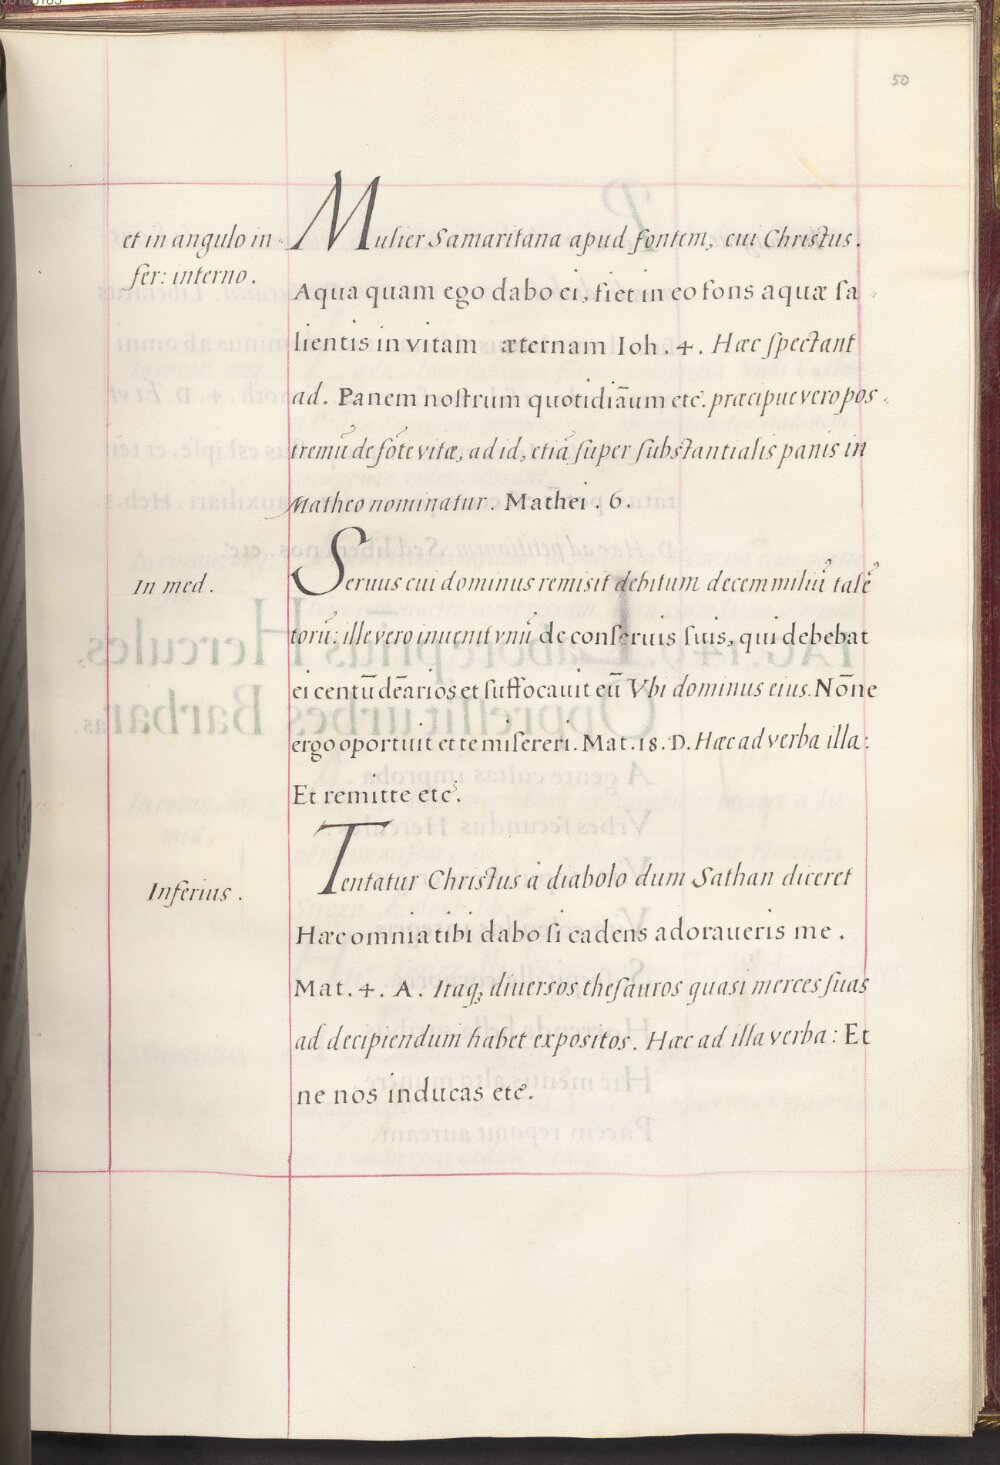 50
et in angulo in-
fer: interno.
Mulier Samaritana apud fontem, cui Christus.
Aqua quam ego dabo ei, fiet in eo fons aquæ sa-
lientis in vitam æternam Ioh. 4. Hæc spectant
ad. Panem nostrum quotidiānum etc. præcipue vero pos-
tremū de fōte vitæ, ad id, etiā super substantialis panis in
Matheo nominatur. Mathei. 6.
In med.
Seruus cui dominus remisit debitum decem miliū talē
torū: ille vero inuenit vnū de conseruis suis, qui debebat
ei centū dēarios et suffocauit eū Vbi dominus eius. Nōne
ergo oportuit et te misereri. Mat. 18. D. Hæc ad verba illa:
Et remitte etc.
Inferius.
Tentatur Christus à diabolo dum Sathan diceret
Hæc omnia tibi dabo si cadens adoraueris me.
Mat. 4. A. Itaq; diuersos thesauros quasi merces suas
ad decipiendum habet expositos. Hæc ad illa verba: Et
ne nos inducas etc.